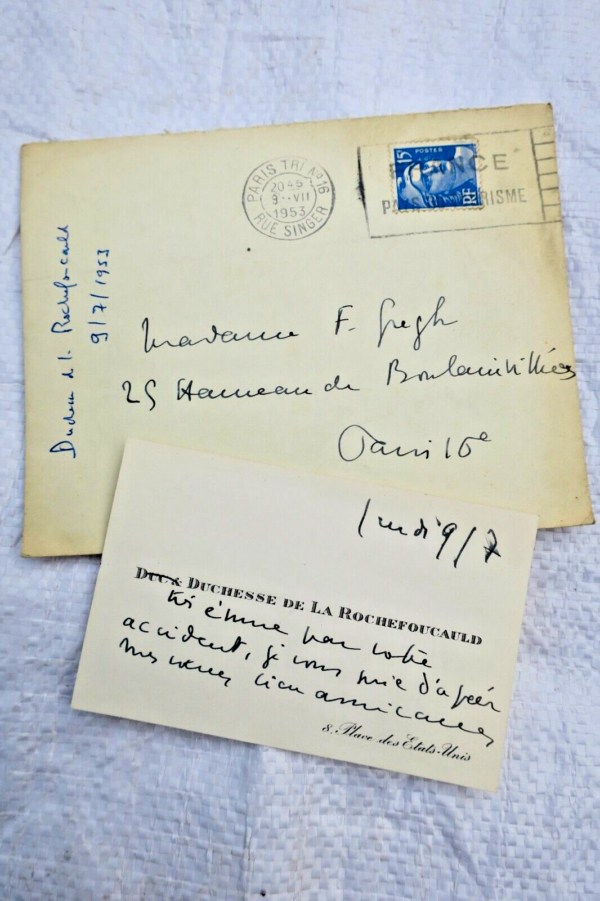 Duchesse de la Rochefoucauld
9/7/1953
PARIS TRI Nº 16
9-VII
1953
RUE SINGER
15F POSTES
RF
Madame F. Gregh
25 Hameau de Boulainvilliers
Paris 16e
9/7
DUC & DUCHESSE DE LA ROCHEFOUCAULD
très émue par votre
accident, je vous prie d'agréer
mes vœux bien
8. Place des États-Unis